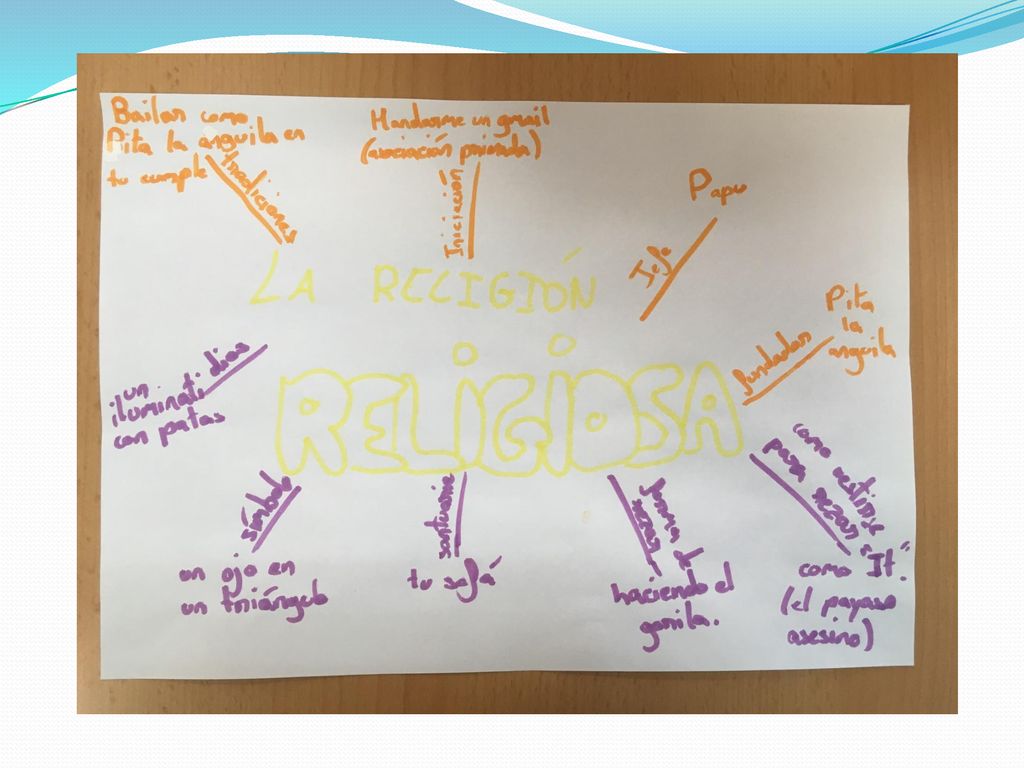 Bailar como
Pita la anguila en
tu cumple
tradiciones
Mandarme un gmail
(asociación privada)
Iniciación
Papu
Jefe
LA RELIGIÓN
Pita
la
anguila
fundador
RELIGIOSA
dios
un
iluminati
con patas
símbolo
un ojo en
un triángulo
santuario
tu sofá
forma de
rezar
haciendo el
gorila.
como vestirse
para rezar
como "It".
(el payaso
asesino)